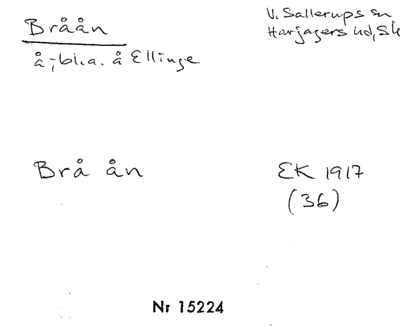 Bråån
V. Sallerups sn
Harjagers hd, Sk
å; bl.a. å Ellinge
Brå ån
EK 1917
(36)
Nr 15224